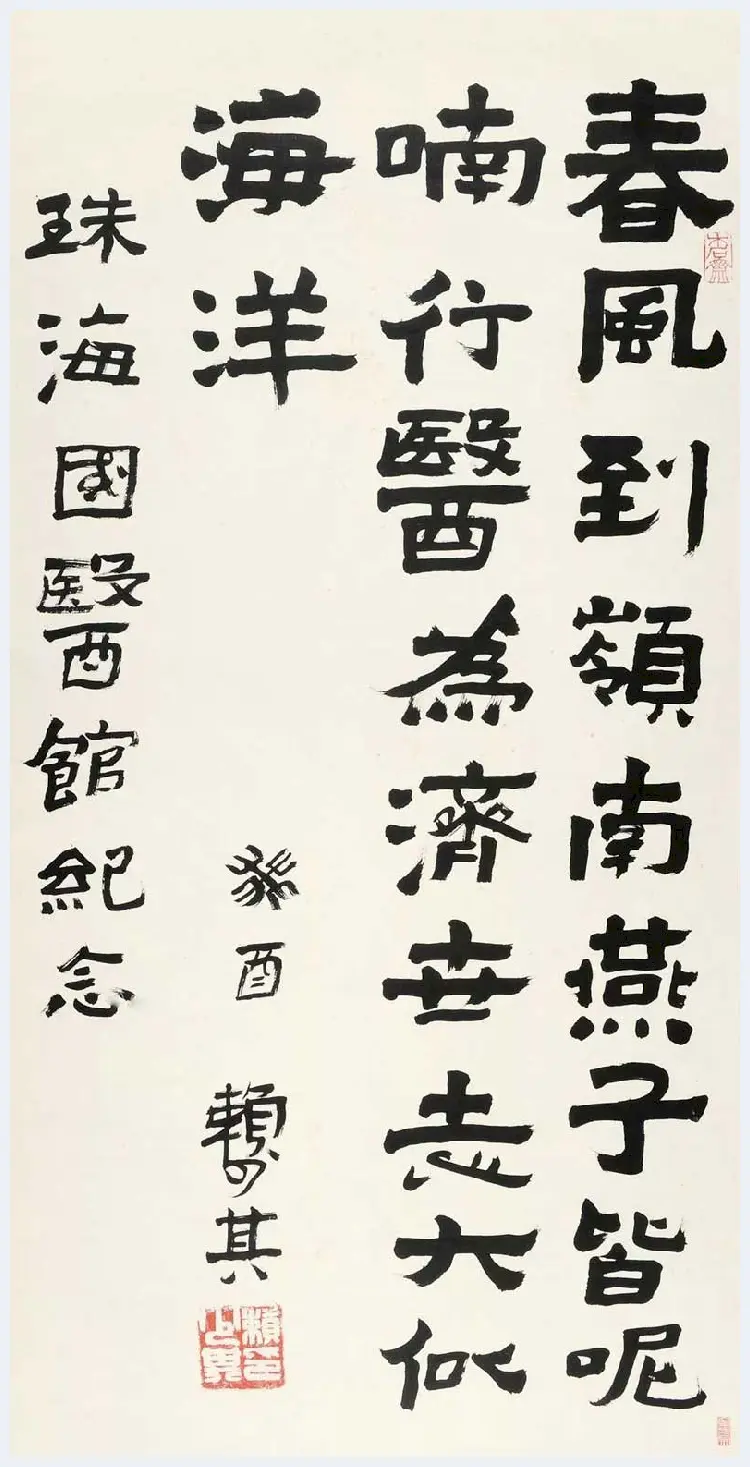 春風到嶺南燕子皆呢
喃行醫為濟世志大似
海洋
癸酉 賴少其
賴印少其
珠海國醫館紀念